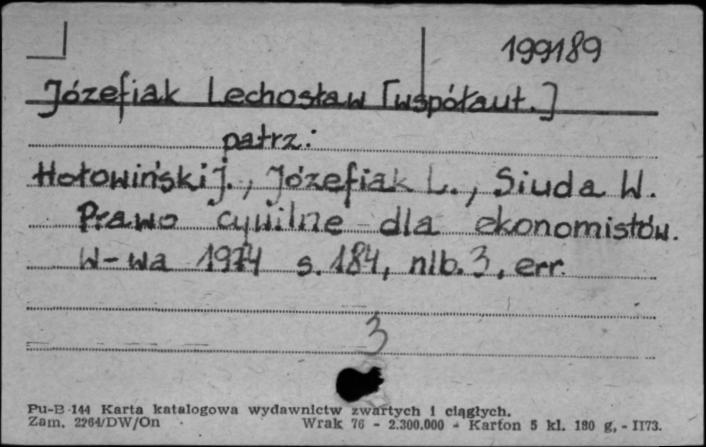 199189
Józefiak Lechosław [współaut.]
patrz:
Hołowiński J., Józefiak L., Siuda W.
Prawo cywilne dla ekonomistów.
W-wa 1974 s. 184, nlb. 3, err.
3
Pu-B-144 Karta katalogowa wydawnictw zwartych i ciągłych.
Zam. 2264/DW/On Wrak 76 - 2.300.000 - Karton 5 kl. 180 g, - II73.